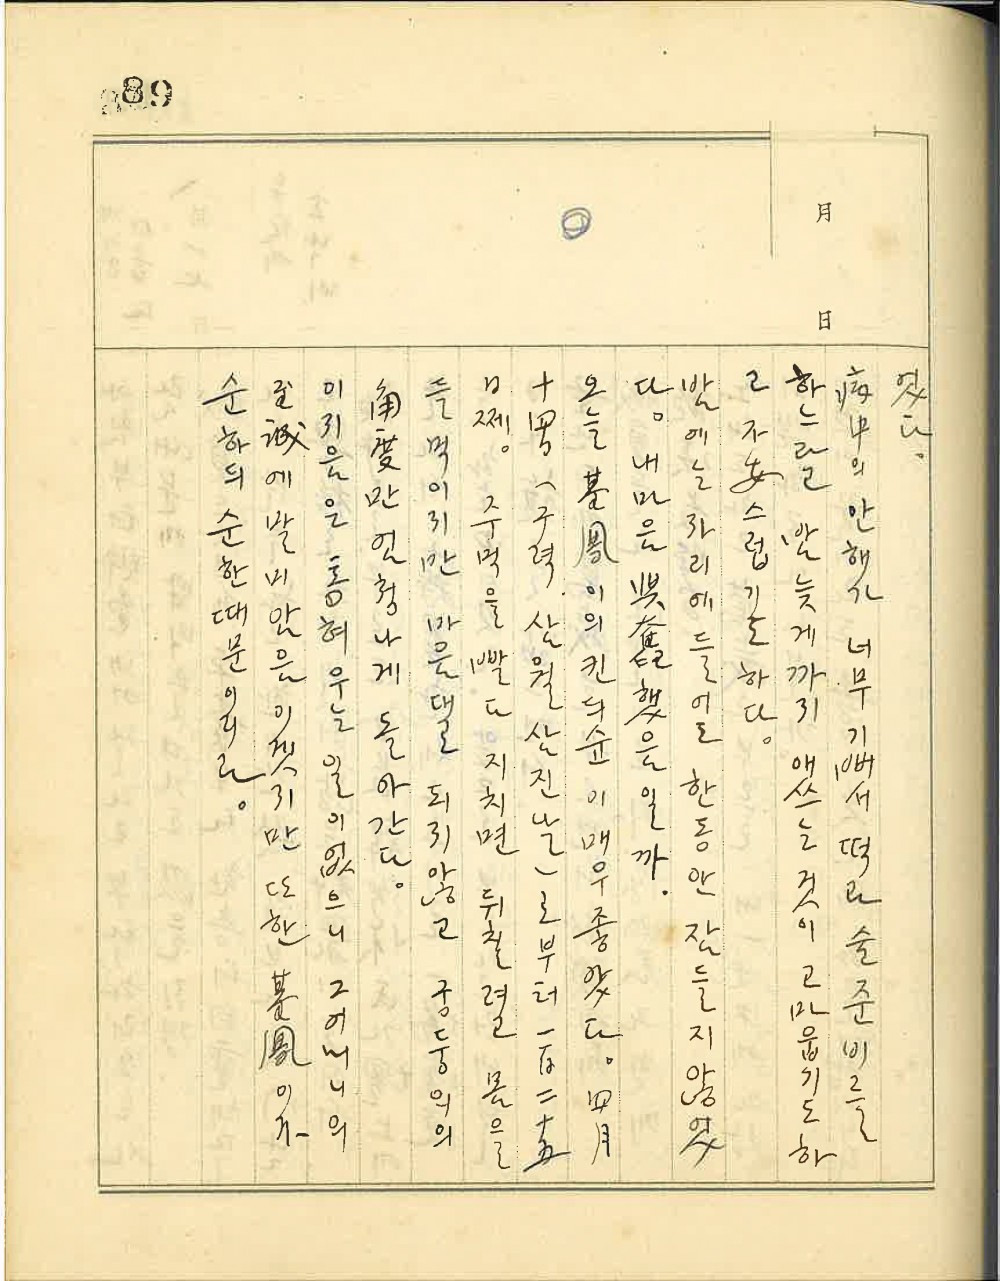 89
月
日
었다。
病中의 안해가 너무 기뻐서 떡과 술 준비를
하느라고 밤 늦게까지 애쓰는 것이 고마웁기도 하
고 不安스럽기도 하다。
밤에는 자리에 들어도 한동안 잠들지 않었
다。 내 마음 興奮했음일까.
오늘 基鳳이의 킨듸슌이 매우 좋았다。 四月
十四 (구력 삼월 삼진날)로부터 一百二十五
日쩨。 주먹을 빨다 지치면 뒤칠려 몸을
들먹이지만 마음대로 되지 않고 궁둥의의
角度만 엄청나게 돌아간다。
이지음은 통혀 우는 일이 없으니 그 어머니의
至誠에 말미암음이겟지만 또한 基鳳이가
순하듸 순한 때문이리라。